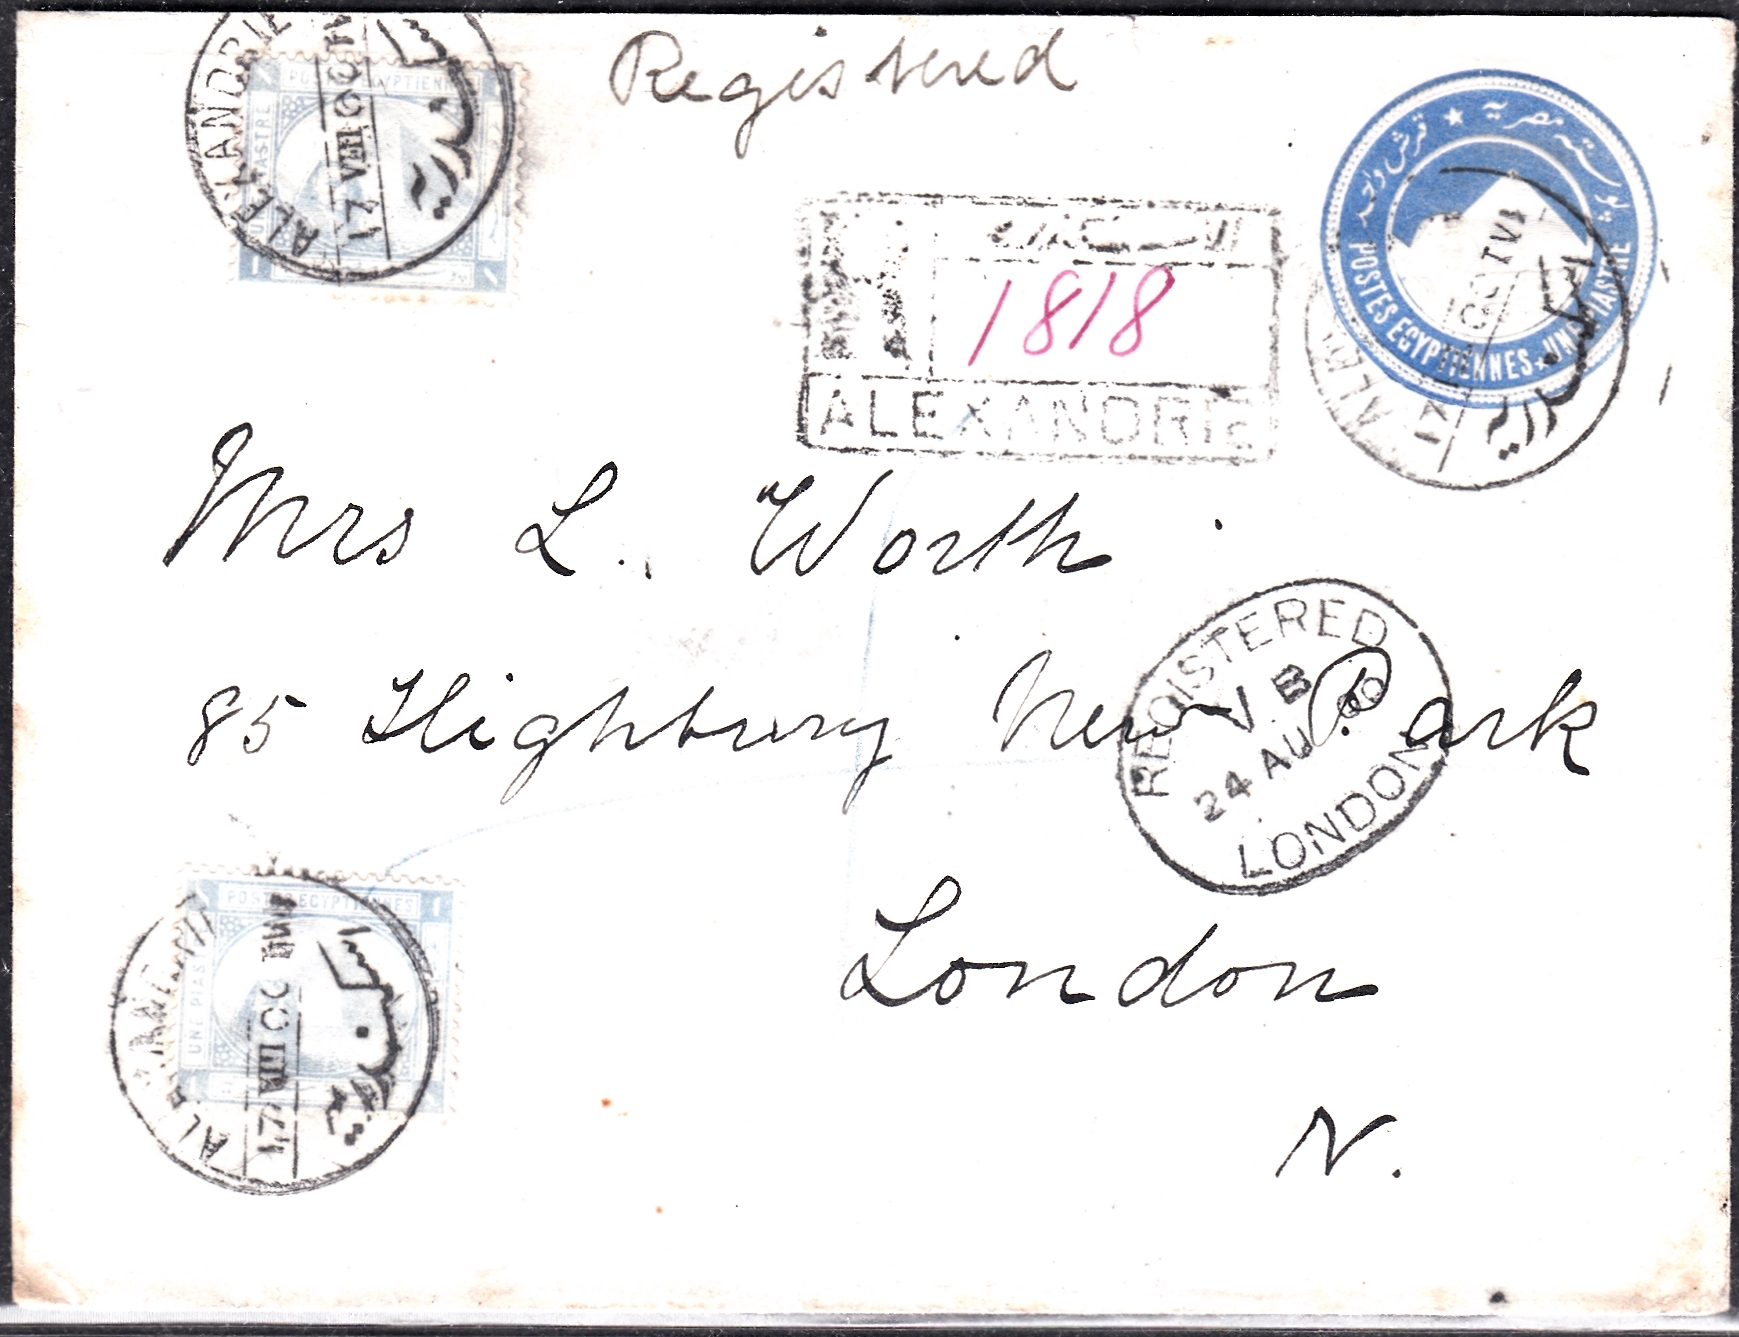 Registered
ALEXANDRIE
17 VIII 00
POSTES EGYPTIENNES
UNE PIASTRE
1818
ALEXANDRIE
بوسته مصرية ★ قرش واحد
POSTES EGYPTIENNES · UNE PIASTRE
اسكندرية
Mrs L. Worth
85 Highbury New Park
London
N.
REGISTERED
VB
24 AU 00
LONDON
POSTES EGYPTIENNES
UNE PIASTRE
17 VIII 00
اسكندرية